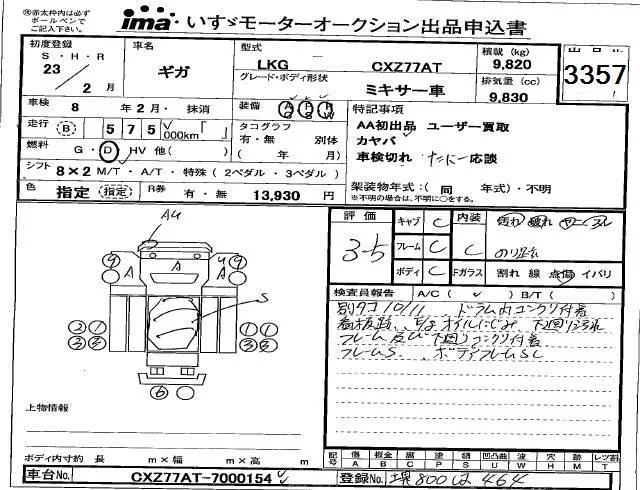 ※赤太枠内は必ずボールペンでご記入下さい。
ima・いすゞモーターオークション出品申込書
初度登録 S・H・R 23 年 2 月
車名 ギガ
型式 LKG CXZ77AT
グレード・ボディ形状 ミキサー車
積載 (kg) 9,820
排気量 (cc) 9,830
出品No. 3357
車検 8 年 2 月・ 抹消
装備 A P P
C S W
走行 (B) 575 000km「 」
タコグラフ 有・無 別体
( 年 月)
燃料 G・D HV 他( )
シフト 8×2 M/T・A/T・特殊 (2ペダル・3ペダル)
色 指定 (指定) R券 有・無 13,930 円
特記事項
AA初出品 ユーザー買取
カヤバ
車検切れ 応談
架装物年式:( 同 年式)・不明
※不明の場合は、不明に○をする。
評価 3-5
キャブ C
フレーム C
ボディ C
内装 C
汚れ 破れ ヤニ
Fガラス 割れ 線 点傷 イバリ
検査員報告 A/C( ✓ ) B/T( )
別タコ10/11、ドラム内コンクリ付着
看板跡、 オイルにじみ、下回り汚れ
フレーム及び下回りコンクリ付着
フレームS、ボディフレームSC
AU
9 A A U 9
A
S
2 1 1 1
3 3 3 3
6
上物情報
ボディ内寸約 長 m×幅 m×高 m
記号 傷 A 板金 B 腐 C 塗 P 錆 S 凹凸曲 U 波 W 穴 H 跡 M レツ割 T
車台No. CXZ77AT-7000154
登録No. 堺800は464